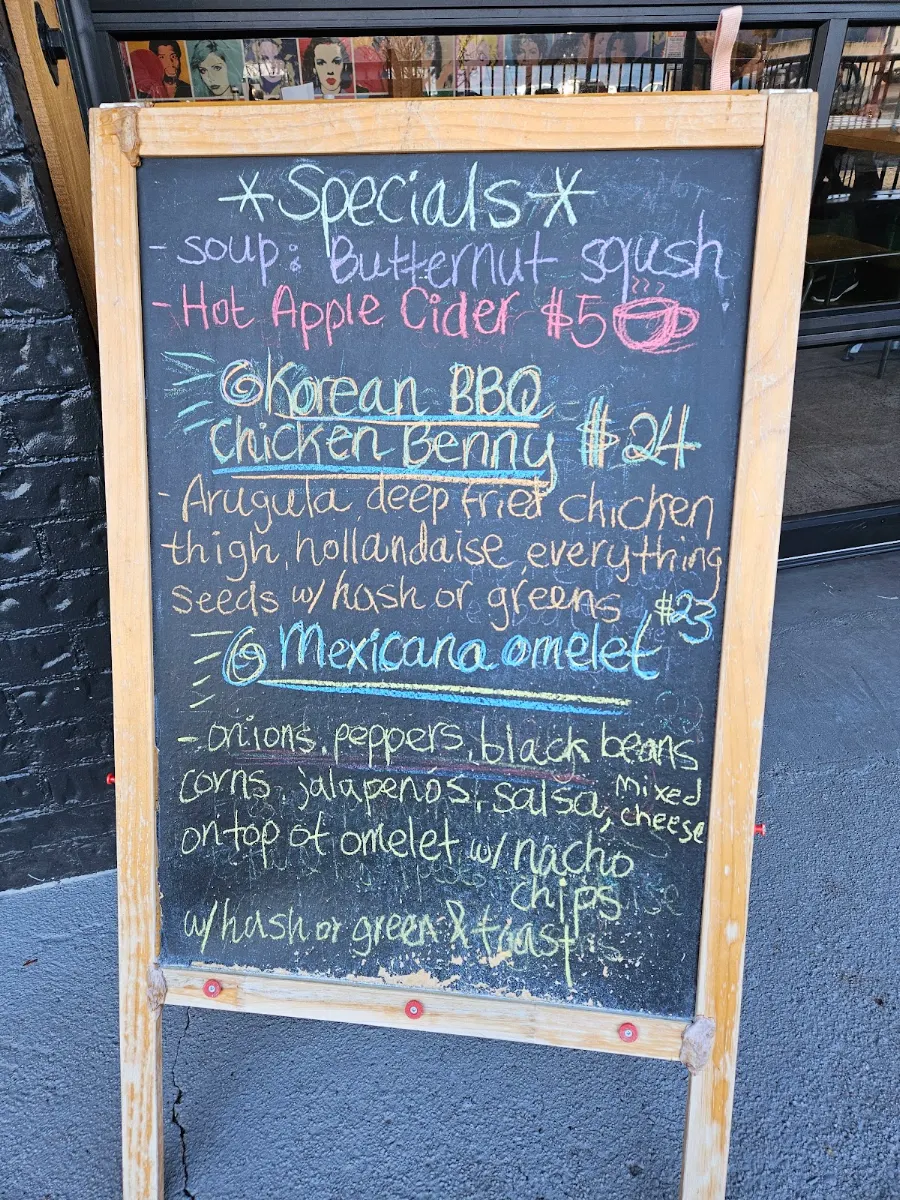 *Specials*
- soup: Butternut sqush
- Hot Apple Cider $5
Korean BBQ
Chicken Benny $24
- Arugula, deep fried chicken
thigh, hollandaise, everything
seeds w/ hash or greens $23
Mexicana omelet
- onions, peppers, black beans
corns, jalapeños, salsa, mixed
cheese
on top of omelet w/ nacho
chips
w/ hash or green & toast